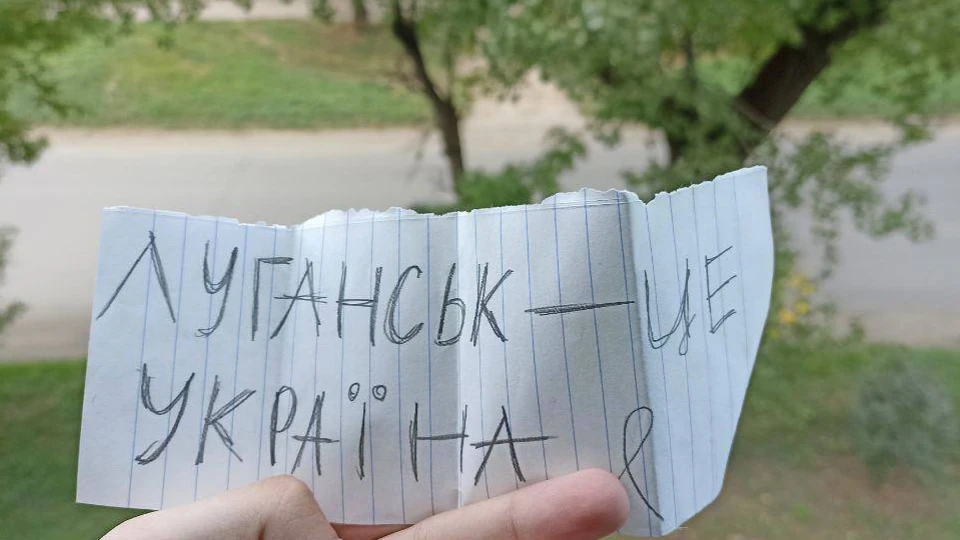 ЛУГАНСЬК — ЦЕ
УКРАЇНА